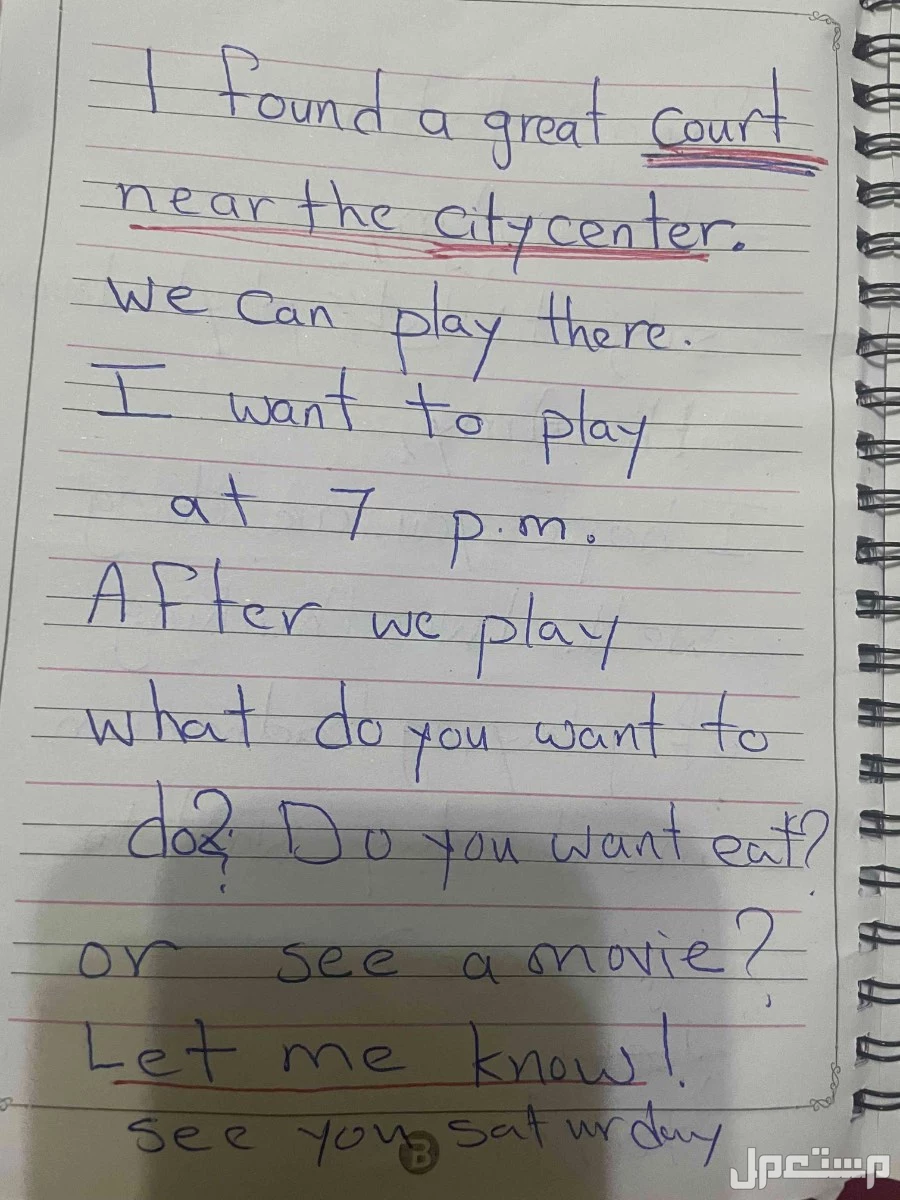 I found a great court
near the city center.
we can play there.
I want to play
at 7 p.m.
After we play
what do you want to
do? Do you want eat?
or see a movie?
Let me know!
see you saturday
B
مستعمل